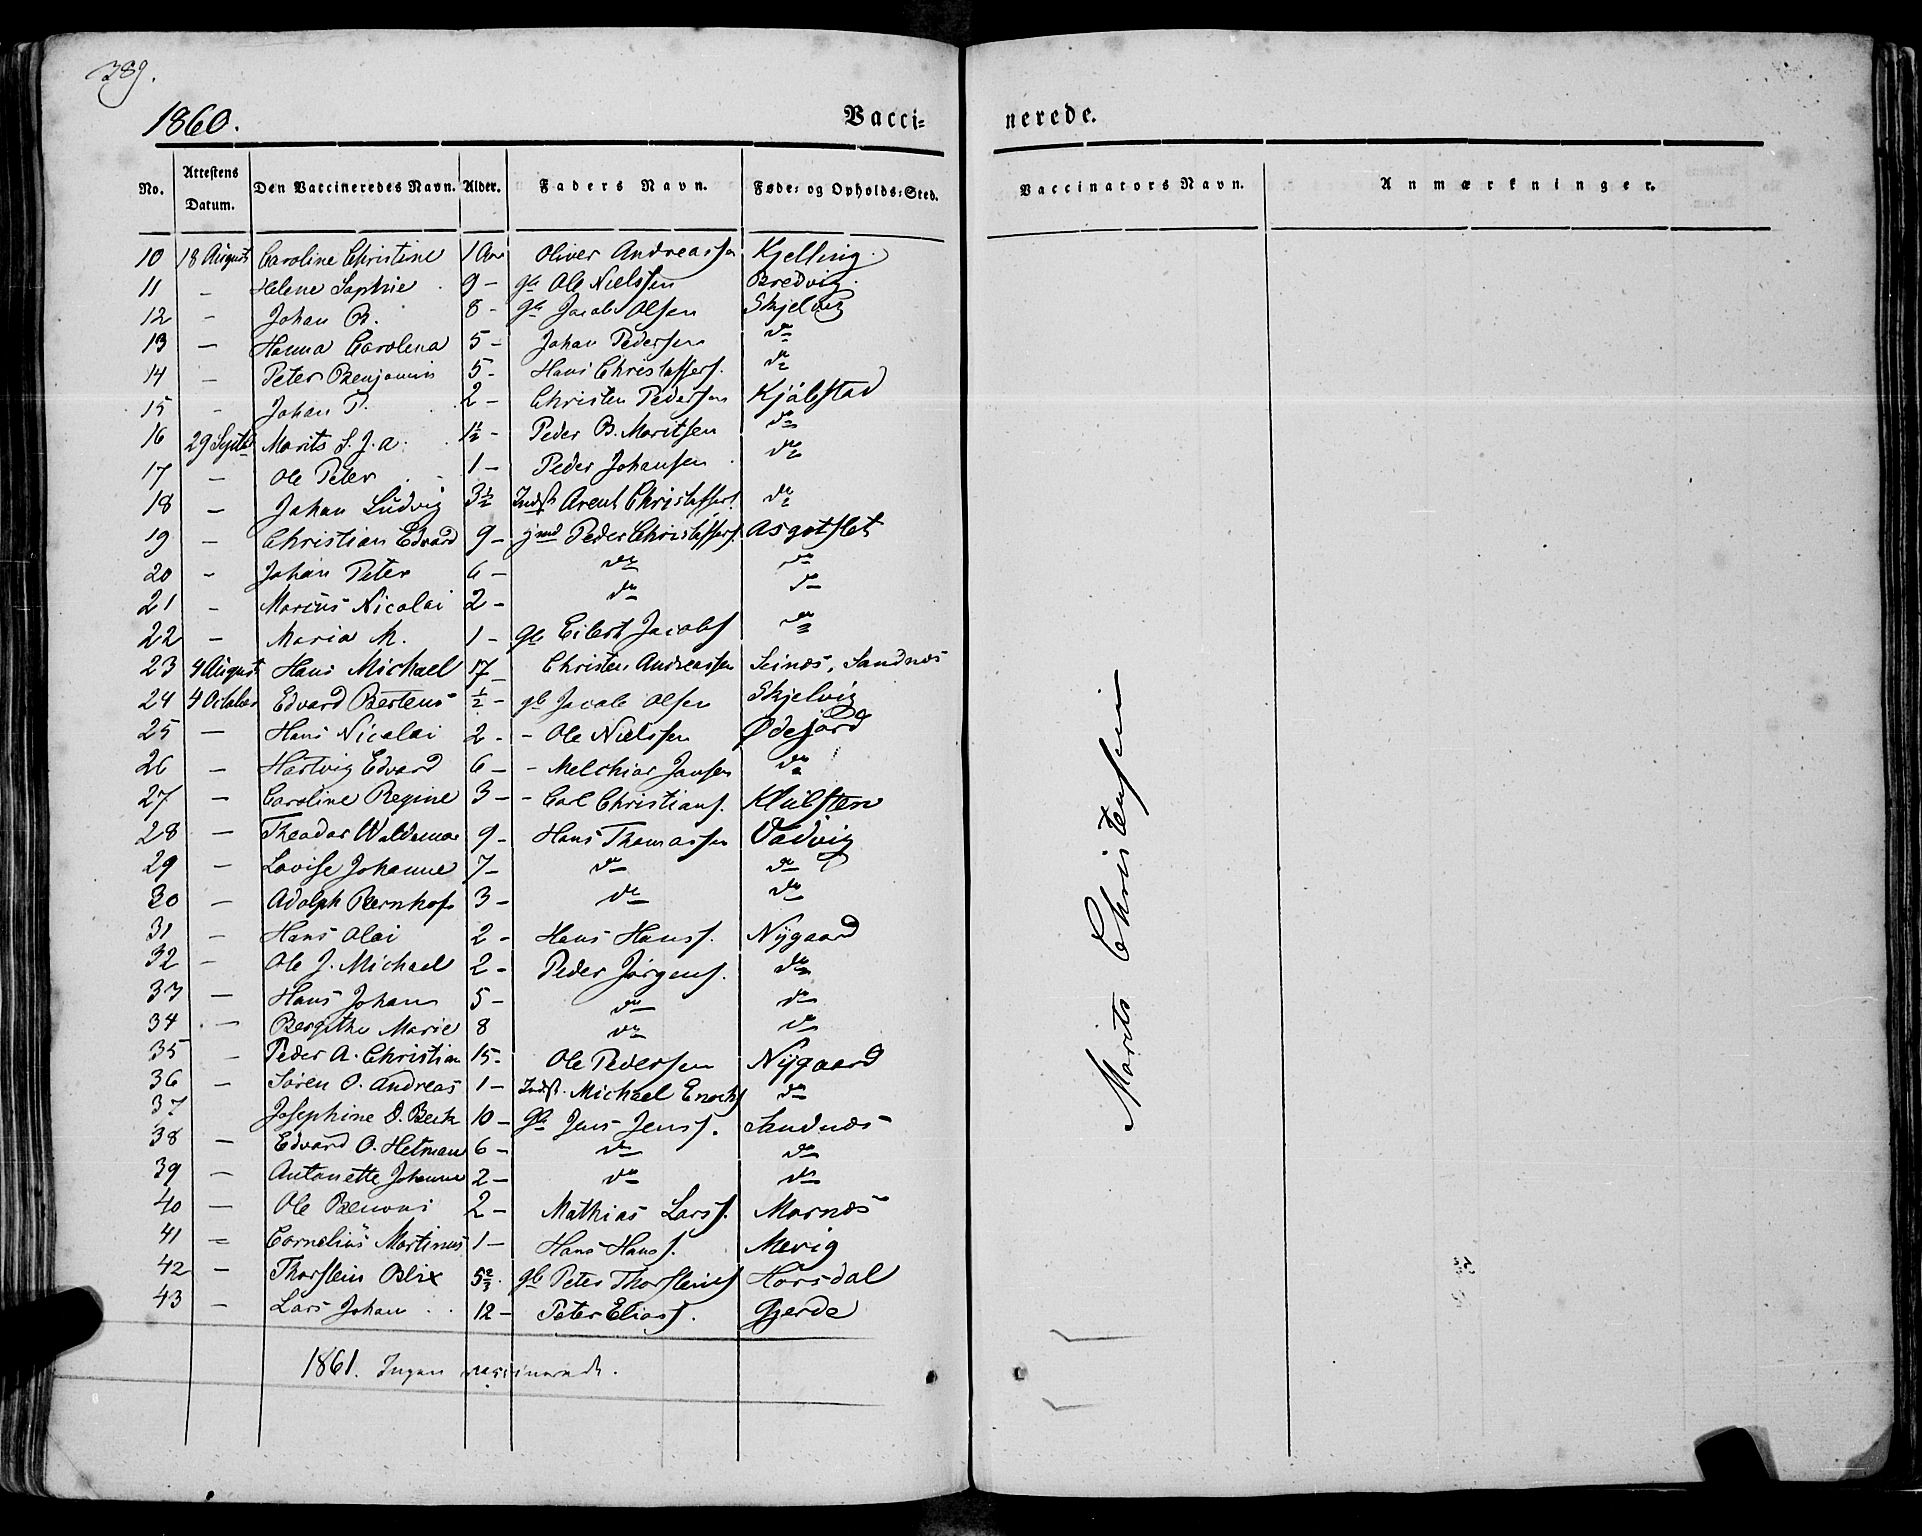 389.
1860. Vacci= nerede.
No. Attestens Datum. Den Vaccineredes Navn. Alder. Faders Navn. Føde= og Opholds=Sted. Vaccinators Navn. Anmærkninger.
10 18 August Caroline Christine 1 Aar Oliver Andreassen Kjelling.
11 – Helene Sophie 9 – gb Ole Nielssen Bredvig.
12 – Johan B. 8 – gb Jacob Olsen Skjelvig
13 – Hanna Carolina 5 – Johan Pedersen do
14 – Peter Benjamin 5 – Hans Christoffers. do
15 – Johan P. 2 – Christen Pedersen Kjølstad
16 29 Septbr Morits S. J. A. 1½ – Peder B. Moritsen do
17 – Ole Peter 1 – Peder Johansen do
18 – Johan Ludvig 3½ Indst Arent Christoffers. do
19 – Christian Edvard 9 – gmd Peder Christoffers. Asgotslet
20 – Johan Peter 6 – do do
21 – Marius Nicolai 2 – do do
22 – Maria M. 1 – gb Eilert Jacobs do
23 4 August Hans Michael 17 – Christen Andreassen Seinæs, Sandnæs
24 4 October Edvard Bertens ½ – gb Jacob Olsen Skjelvig
25 – Hans Nicolai 2 – – Ole Nielssen Ødejord
26 – Hartvig Edvard 6 – – Melchior Jansen do
27 – Caroline Regine 3 – – Carl Christians. Klulsten
28 – Theodor Waldemar 9 – Hans Thomassen Vadvig
29 – Lovise Johanne 7 – do do
30 – Adolph Bernhof 3 – do do
31 – Hans Olai 2 – Hans Hanss. Nygaard
32 – Ole J. Michael 2 – Peder Jørgens. do
33 – Hans Johan 5 – do do
34 – Bergithe Marie 8 do do
35 – Peder A. Christian 15 – Ole Pedersen Nygaard
36 – Søren O. Andreas 1 – Indst. Michael Enochs do
37 Josephine D. Beck 10 – gb Jens Jenss. Sandnæs
38 – Edvard O. Hetman 6 – do do
39 – Antonette Johanne 2 – do do
40 – Ole Benoni 2 – Mathias Larss. Mornæs
41 – Cornelius Martinus 1 – Hans Hanss. Mevig
42 – Thorstein Blix 5⅔ gb Peter Thorsteins Horsdal
43 – Lars Johan 12 – Peter Eliass. Gjerde
1861. Ingen vaccinerede.
Morits Christensen